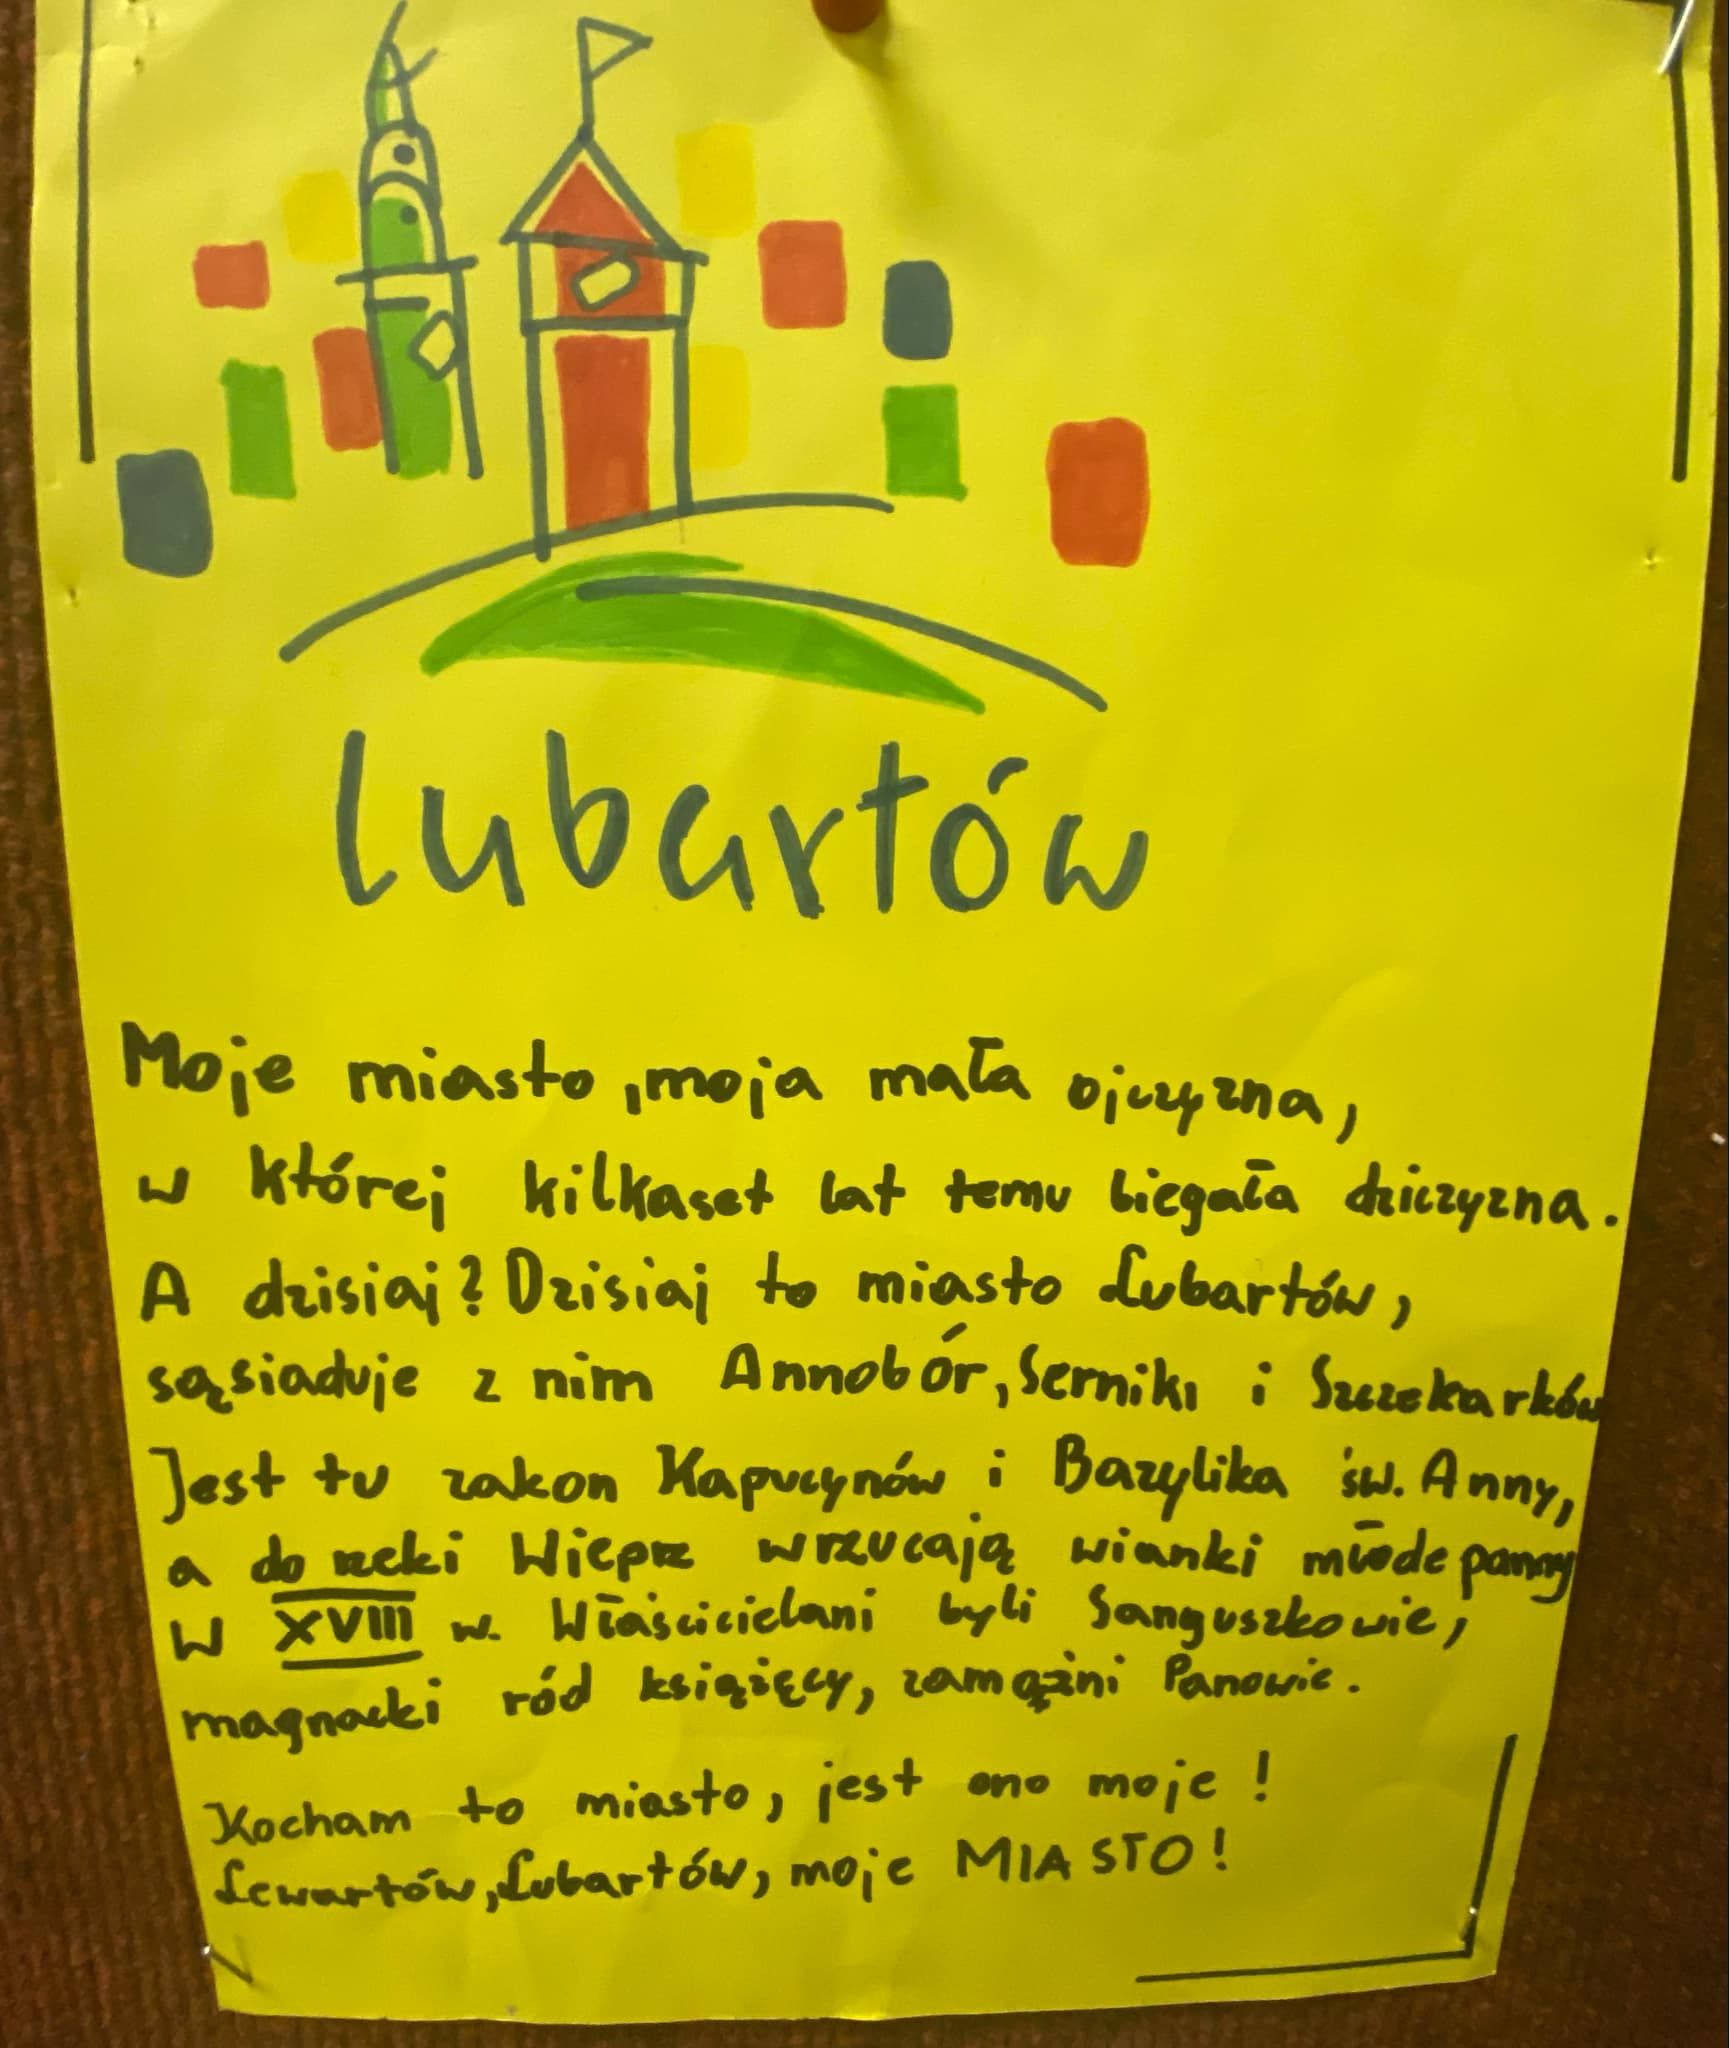 Lubartów
Moje miasto, moja mała ojczyzna,
w której kilkaset lat temu biegała dziczyzna.
A dzisiaj? Dzisiaj to miasto Lubartów,
sąsiaduje z nim Annobór, Serniki i Szczekarków
Jest tu zakon Kapucynów i Bazylika św. Anny,
a do rzeki Wieprz wrzucają wianki młode panny
W XVIII w. Właścicielani byli Sanguszkowie,
magnacki ród książęcy, zamążni Panowie.
Kocham to miasto, jest ono moje!
Lewartów, Lubartów, moje MIASTO!